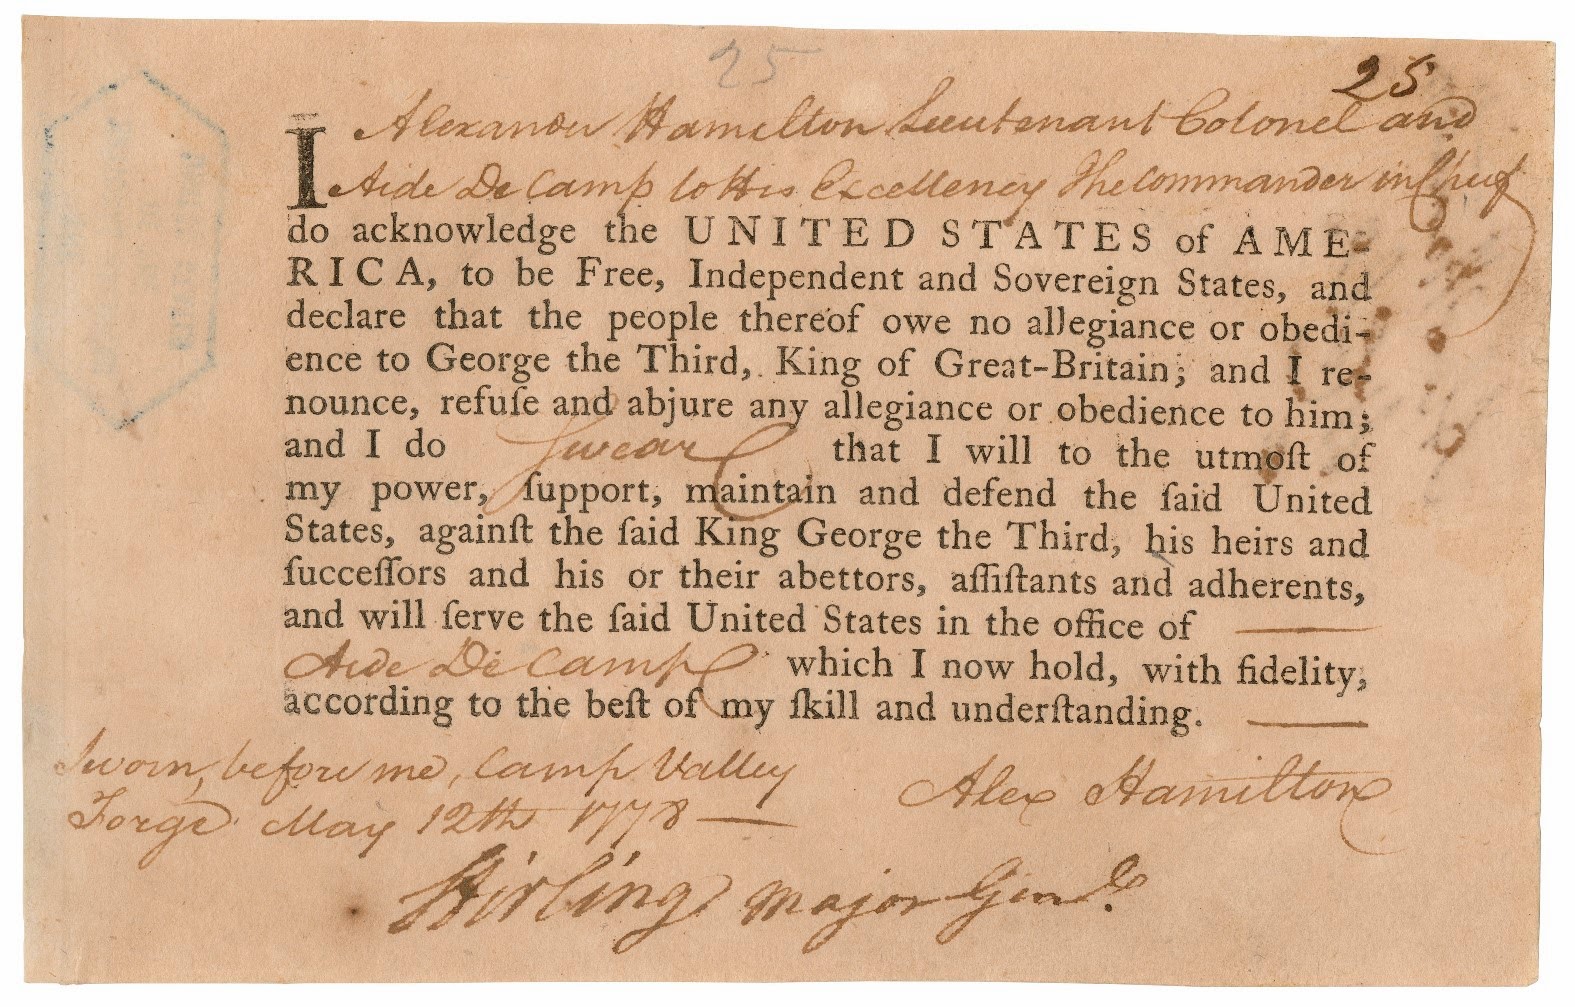 25
25
I Alexander Hamilton Lieutenant Colonel and
Aide De Camp to His Excellency The Commander in Chief
do acknowledge the UNITED STATES of AME-
RICA, to be Free, Independent and Sovereign States, and
declare that the people thereof owe no allegiance or obedi-
ence to George the Third, King of Great-Britain; and I re-
nounce, refuſe and abjure any allegiance or obedience to him;
and I do Swear that I will to the utmoſt of
my power, ſupport, maintain and defend the ſaid United
States, againſt the ſaid King George the Third, his heirs and
ſucceſſors and his or their abettors, aſſiſtants and adherents,
and will ſerve the ſaid United States in the office of ——
Aide De Camp which I now hold, with fidelity,
according to the beſt of my ſkill and underſtanding. ——
Sworn, before me, Camp Valley
Forge May 12th 1778 —
Alex Hamilton
Stirling Major Genl.